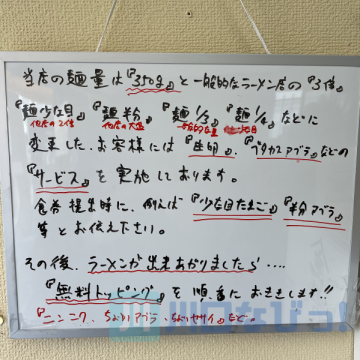 当店の麺量は『350g』と一般的なラーメン店の『3倍』
『麺少な目』『麺半分』『麺1/3』『麺1/4』などに
他店の2倍 他店の大盛 一般的な量
変更した、お客様には『生卵』『ブタカスアブラ』などの
『サービス』を実施しております。
食券提出時に、例えば『少な目たまご』『半分アブラ』
等とお伝え下さい。
その後、ラーメンが出来あがりましたら‥‥
『無料トッピング』を順番におききします!!
『ニンニク、ちょいアブラ、ちょいヤサイ』など。